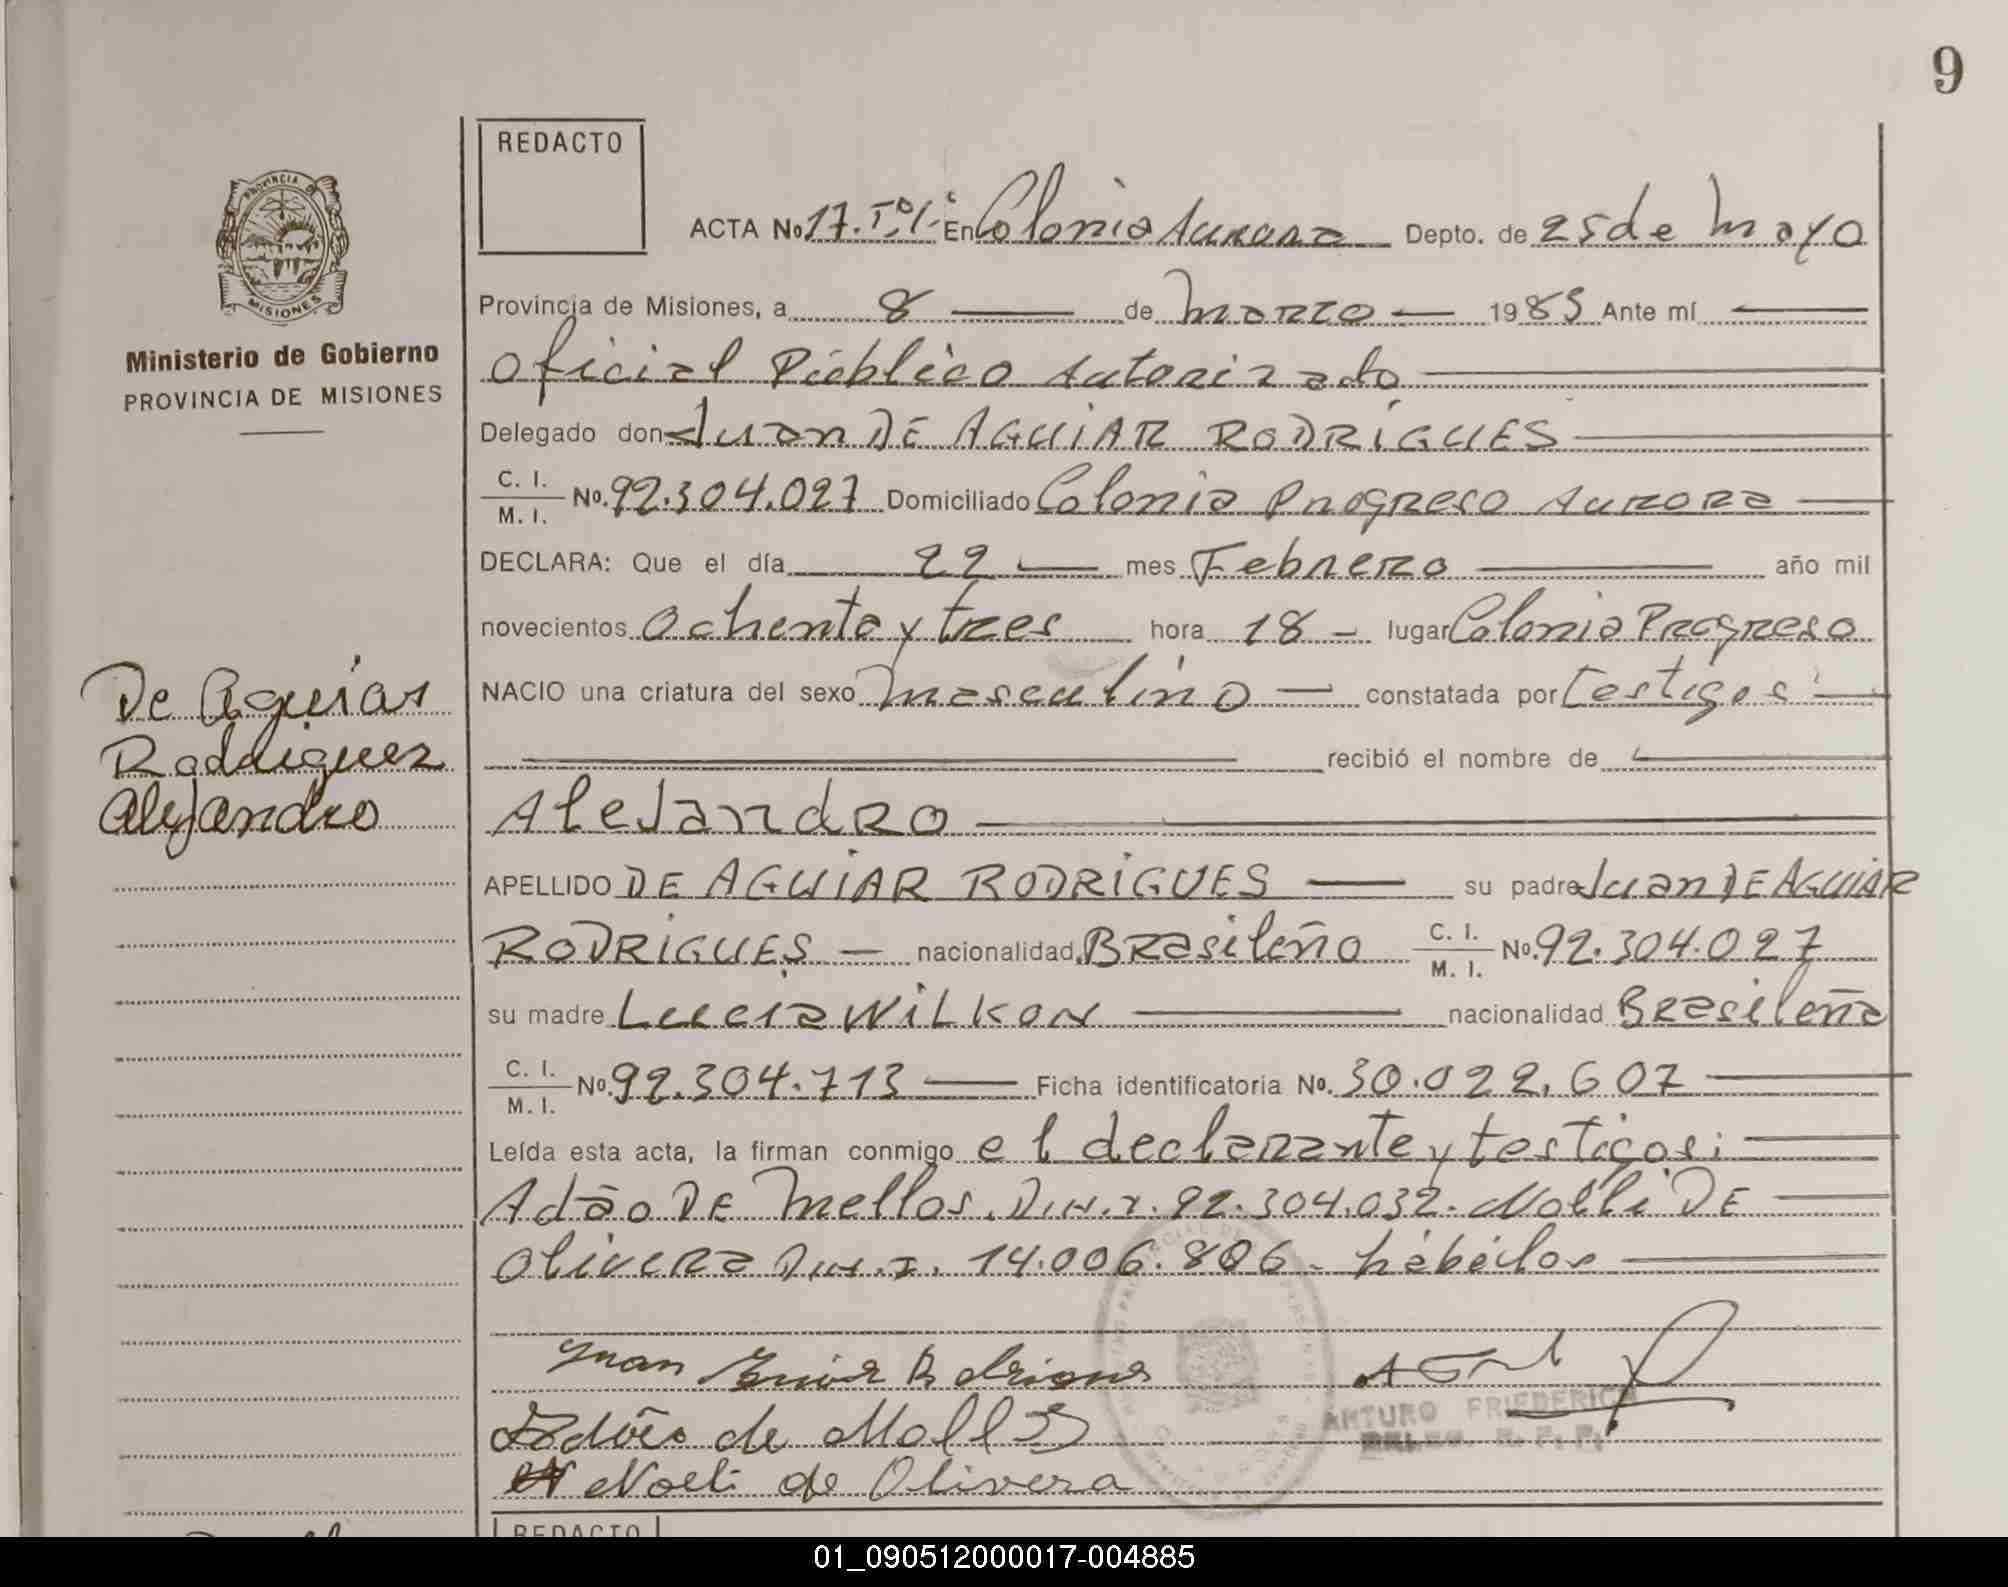 9
REDACTO
PROVINCIA DE
MISIONES
Ministerio de Gobierno
PROVINCIA DE MISIONES
ACTA No 17. Tº 1.- En Colonia Aurora Depto. de 25 de Mayo
Provincia de Misiones, a 8 de Marzo 1983 Ante mí
Oficial Público Autorizado
Delegado don Juan DE AGUIAR RODRIGUES
C. I.
M. I. No. 92.304.027 Domiciliado Colonia Progreso Aurora
DECLARA: Que el día 22 mes Febrero año mil
novecientos Ochenta y tres hora 18 – lugar Colonia Progreso
De Aguiar
Rodriguez
Alejandro
NACIO una criatura del sexo Masculino — constatada por testigos
recibió el nombre de
Alejandro
APELLIDO DE AGUIAR RODRIGUES — su padre Juan DE AGUIAR
RODRIGUES — nacionalidad Brasileño C. I.
M. I. No. 92.304.027
su madre Lucia WILKON nacionalidad Brasileña
C. I.
M. I. No. 92.304.713 Ficha identificatoria No. 30.022.607
Leída esta acta, la firman conmigo el declarante y testigos:
Adão DE Mellos. D.N.I. 92.304.032. Nolli DE
Olivera D.N.I. 14.006.806 - hábiles
Juan Aguiar Rodrigues
Adão de Mells
Noeli de Olivera
ARTURO FRIEDERICH
DELEG. R. P. P.
REDACTO
01_090512000017-004885